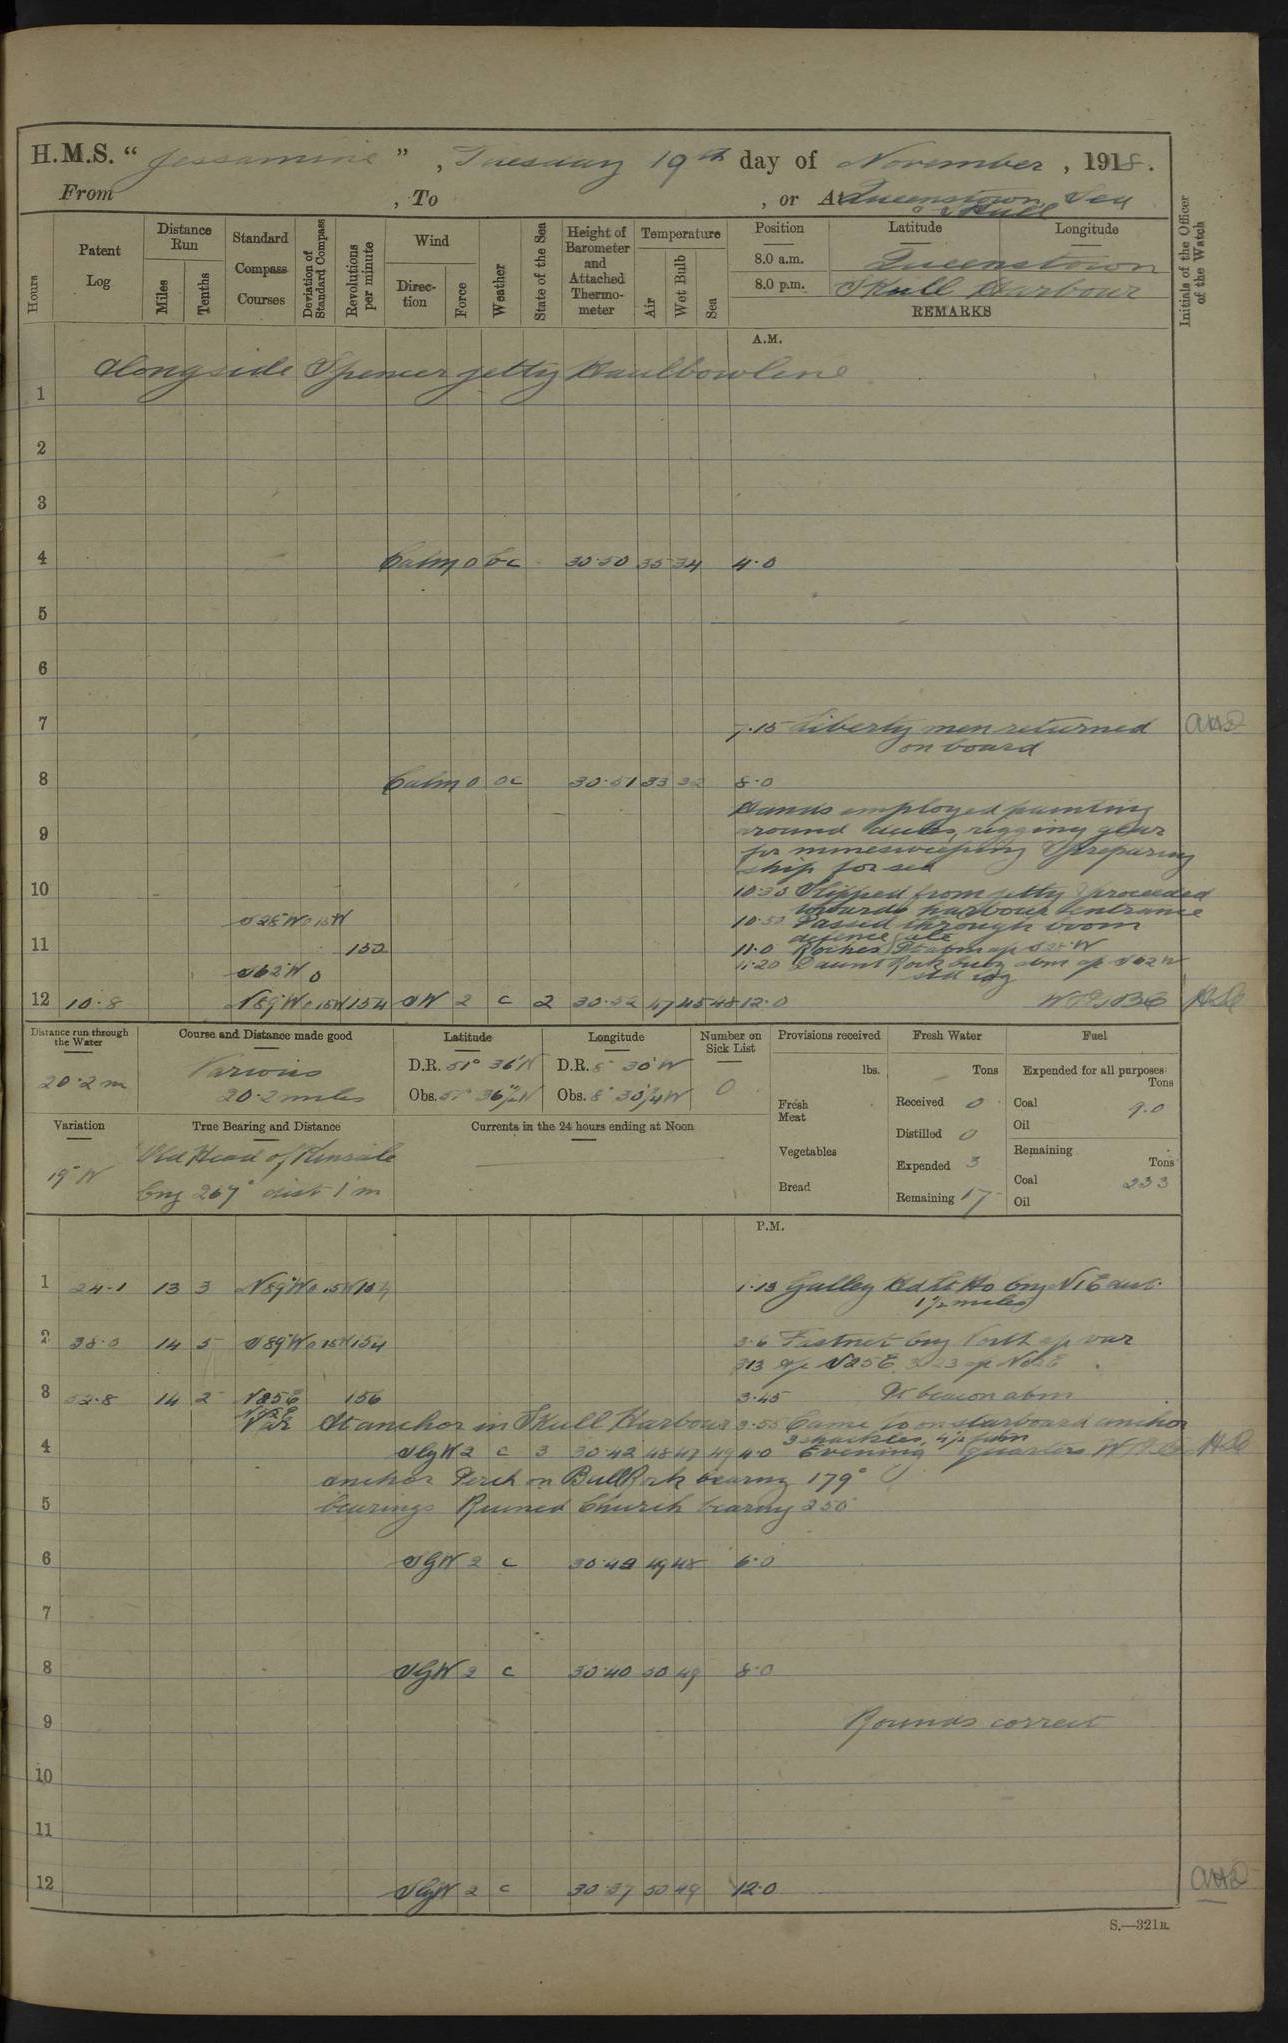 H.M.S. "Jessamine", Tuesday 19th day of November, 1918.
From , To , or At Queenstown, Sea
& Skull
Hours
Patent Log
Distance Run
Miles
Tenths
Standard Compass Courses
Deviation of Standard Compass
Revolutions per minute
Wind
Direction
Force
Weather
State of the Sea
Height of Barometer and Attached Thermometer
Temperature
Air
Wet Bulb
Sea
Position
Latitude
Longitude
8.0 a.m. Queenstown
8.0 p.m. Skull Harbour
REMARKS
Initials of the Officer of the Watch
A.M.
Alongside Spencer jetty Haulbowline
1
2
3
4 Calm 0 bc 30.50 35 34 4.0
5
6
7 7.15 Liberty men returned
on board
8 Calm 0 oc 30.51 33 32 8.0
Hands employed painting
9 round decks, rigging gear
for minesweeping & preparing
ship for sea
10 10.30 Slipped from jetty & proceeded
towards harbour entrance
S28°W 0 15W 10.50 Passed through boom
defence gate
11 152 11.0 Roches Pt abm a/c S28°W
S62°W 0 11.20 Daunt Rock buoy abm a/c S62W
12 10.8 N89°W 0 15W 154 SW 2 c 2 30.52 47 45 48 12.0
Distance run through the Water
20.2 m
Course and Distance made good
Various
20.2 miles
Latitude
D.R. 51° 36'N
Obs. 51° 36½'N
Longitude
D.R. 8° 30'W
Obs. 8° 30¼W
Number on Sick List
0
Provisions received
lbs.
Fresh Meat
Vegetables
Bread
Fresh Water
Tons
Received 0
Distilled 0
Expended 3
Remaining 17
Fuel
Expended for all purposes
Tons
Coal 9.0
Oil
Remaining
Tons
Coal 233
Oil
Variation
19°W
True Bearing and Distance
Old Head of Kinsale
brg 267° dist 1'm
Currents in the 24 hours ending at Noon
P.M.
1 24.1 13 3 N89°W 0 15W 154 1.13 Galley Hd Lt Ho brg N1E dist.
1½ miles
2 38.0 14 5 S89°W 0 15W 154 3.6 Fastnet brg North a/c var
313 a/c N25E
3 52.8 14 2 N25E 156 3.45 Lt beacon abm
At anchor in Skull Harbour 3.55 Came to on starboard anchor
3 shackles, 4½ fthm
4 SWW 2 c 3 30.42 48 47 49 4.0 Evening quarters
anchor Perch on Bull Rock bearing 179°
5 bearings Ruined Church bearing 250°
6 2 c 49 48 6.0
7
8 2 c 30.40 50 49 8.0
9 Rounds correct
10
11
12 2 c 30.37 50 49 12.0
S.—321B.